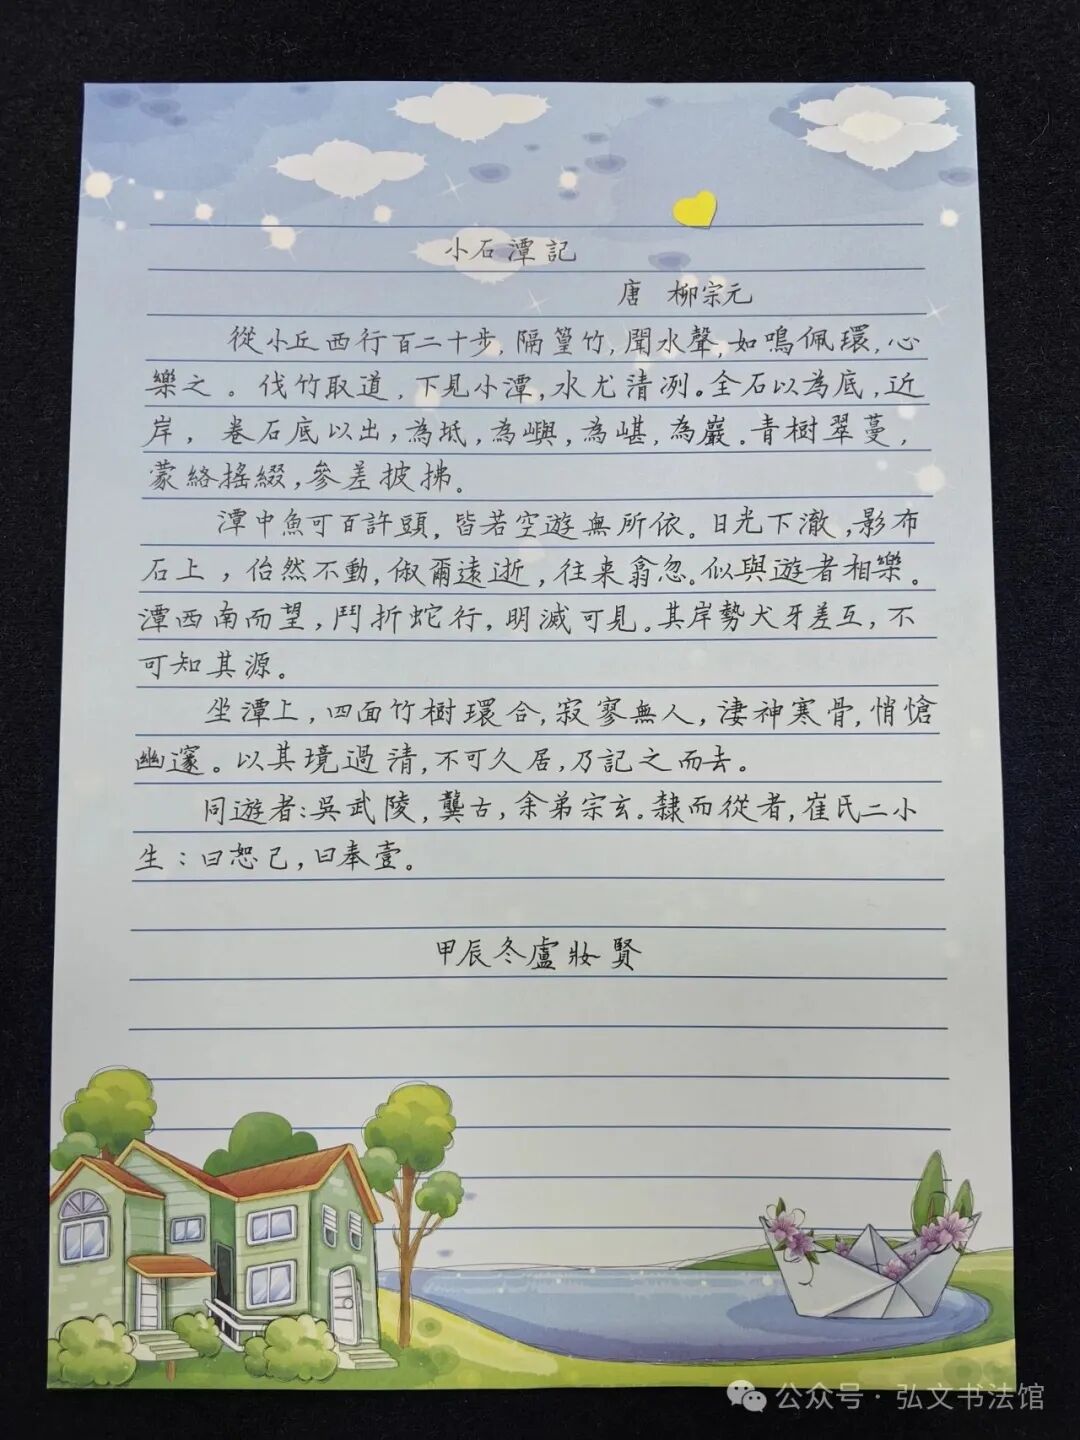 小石潭記
唐 柳宗元
從小丘西行百二十步,隔篁竹,聞水聲,如鳴佩環,心
樂之。伐竹取道,下見小潭,水尤清冽。全石以為底,近
岸,卷石底以出,為坻,為嶼,為嵁,為巖。青樹翠蔓,
蒙絡搖綴,參差披拂。
潭中魚可百許頭,皆若空遊無所依。日光下澈,影布
石上,佁然不動,俶爾遠逝,往来翕忽。似與遊者相樂。
潭西南而望,鬥折蛇行,明滅可見。其岸勢犬牙差互,不
可知其源。
坐潭上,四面竹樹環合,寂寥無人,淒神寒骨,悄愴
幽邃。以其境過清,不可久居,乃記之而去。
同遊者:吳武陵,龔古,余弟宗玄。隸而從者,崔氏二小
生:曰恕己,曰奉壹。
甲辰冬盧妝賢
公众号·弘文书法馆